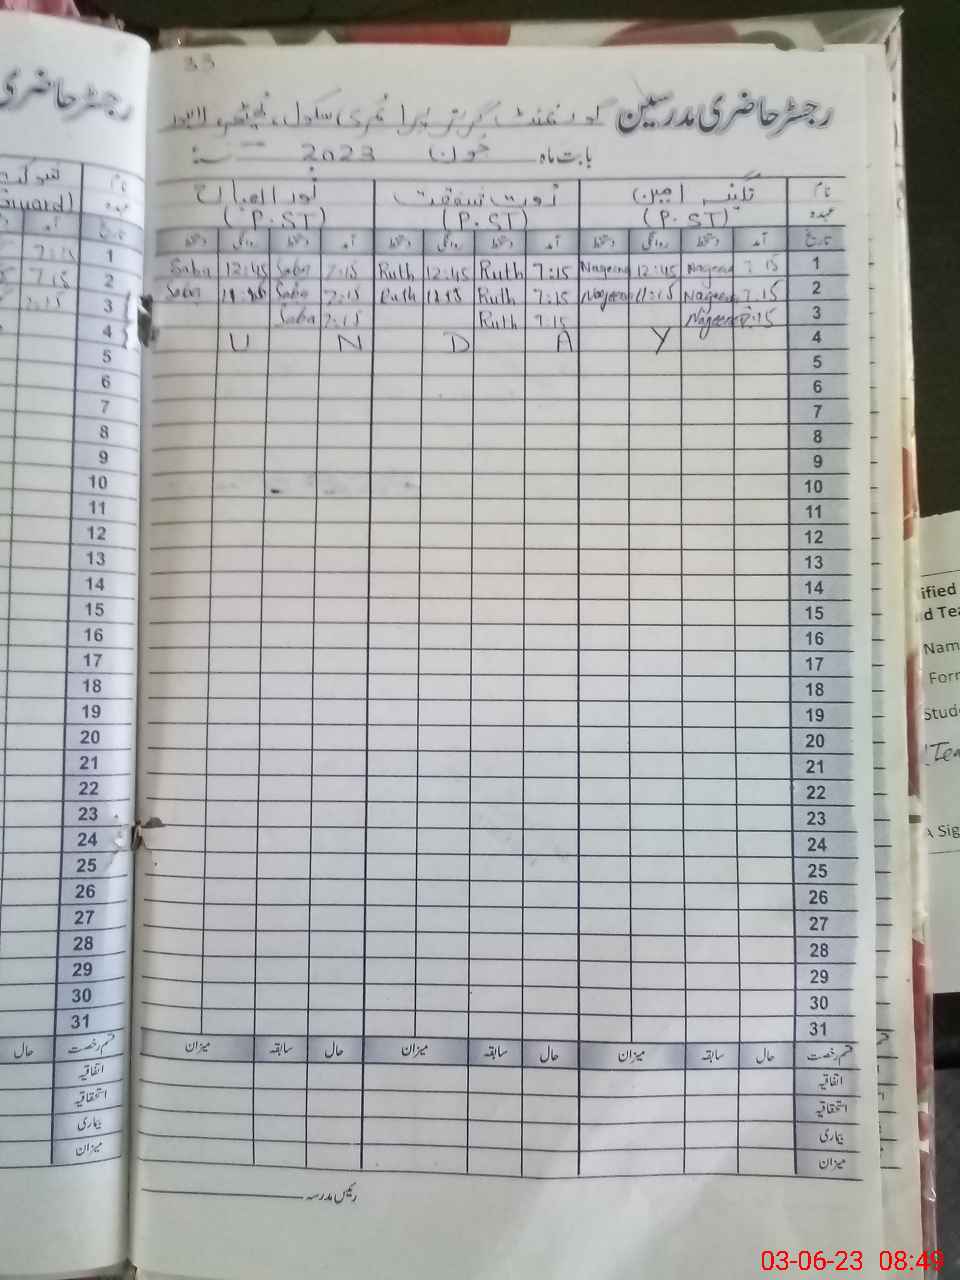 33
رجسٹر حاضری مدرسین گورنمنٹ گرلز پرائمری سکول،
بابت ماہ جون 2023
نام نگینہ امین روت شفقت نور الصباح
عہدہ (P.ST) (P.ST) (P.ST)
تاریخ آمد دستخط روانگی دستخط آمد دستخط روانگی دستخط آمد دستخط روانگی دستخط
1 7:15 Nageena 12:45 Nageena 7:15 Ruth 12:45 Ruth 7:15 Saba 12:45 Saba
2 7:15 Nageena 11:15 Nageena 7:15 Ruth Ruth 7:15 Saba Saba
3 7:15 Nageena 7:15 Ruth 7:15 Saba
4 U N D A Y
5
6
7
8
9
10
11
12
13
14
15
16
17
18
19
20
21
22
23
24
25
26
27
28
29
30
31
قسم رخصت حال سابقہ میزان حال سابقہ میزان حال سابقہ میزان
اتفاقیہ
استحقاقیہ
بیماری
میزان
رئیس مدرسہ
رجسٹر حاضری
نام
عہدہ
تاریخ
1 7:15
2 7:15
3 7:15
4
5
6
7
8
9
10
11
12
13
14
15
16
17
18
19
20
21
22
23
24
25
26
27
28
29
30
31
قسم رخصت حال
اتفاقیہ
استحقاقیہ
بیماری
میزان
ified
d Tea
Nam
Form
Stude
A Sig
03-06-23 08:49